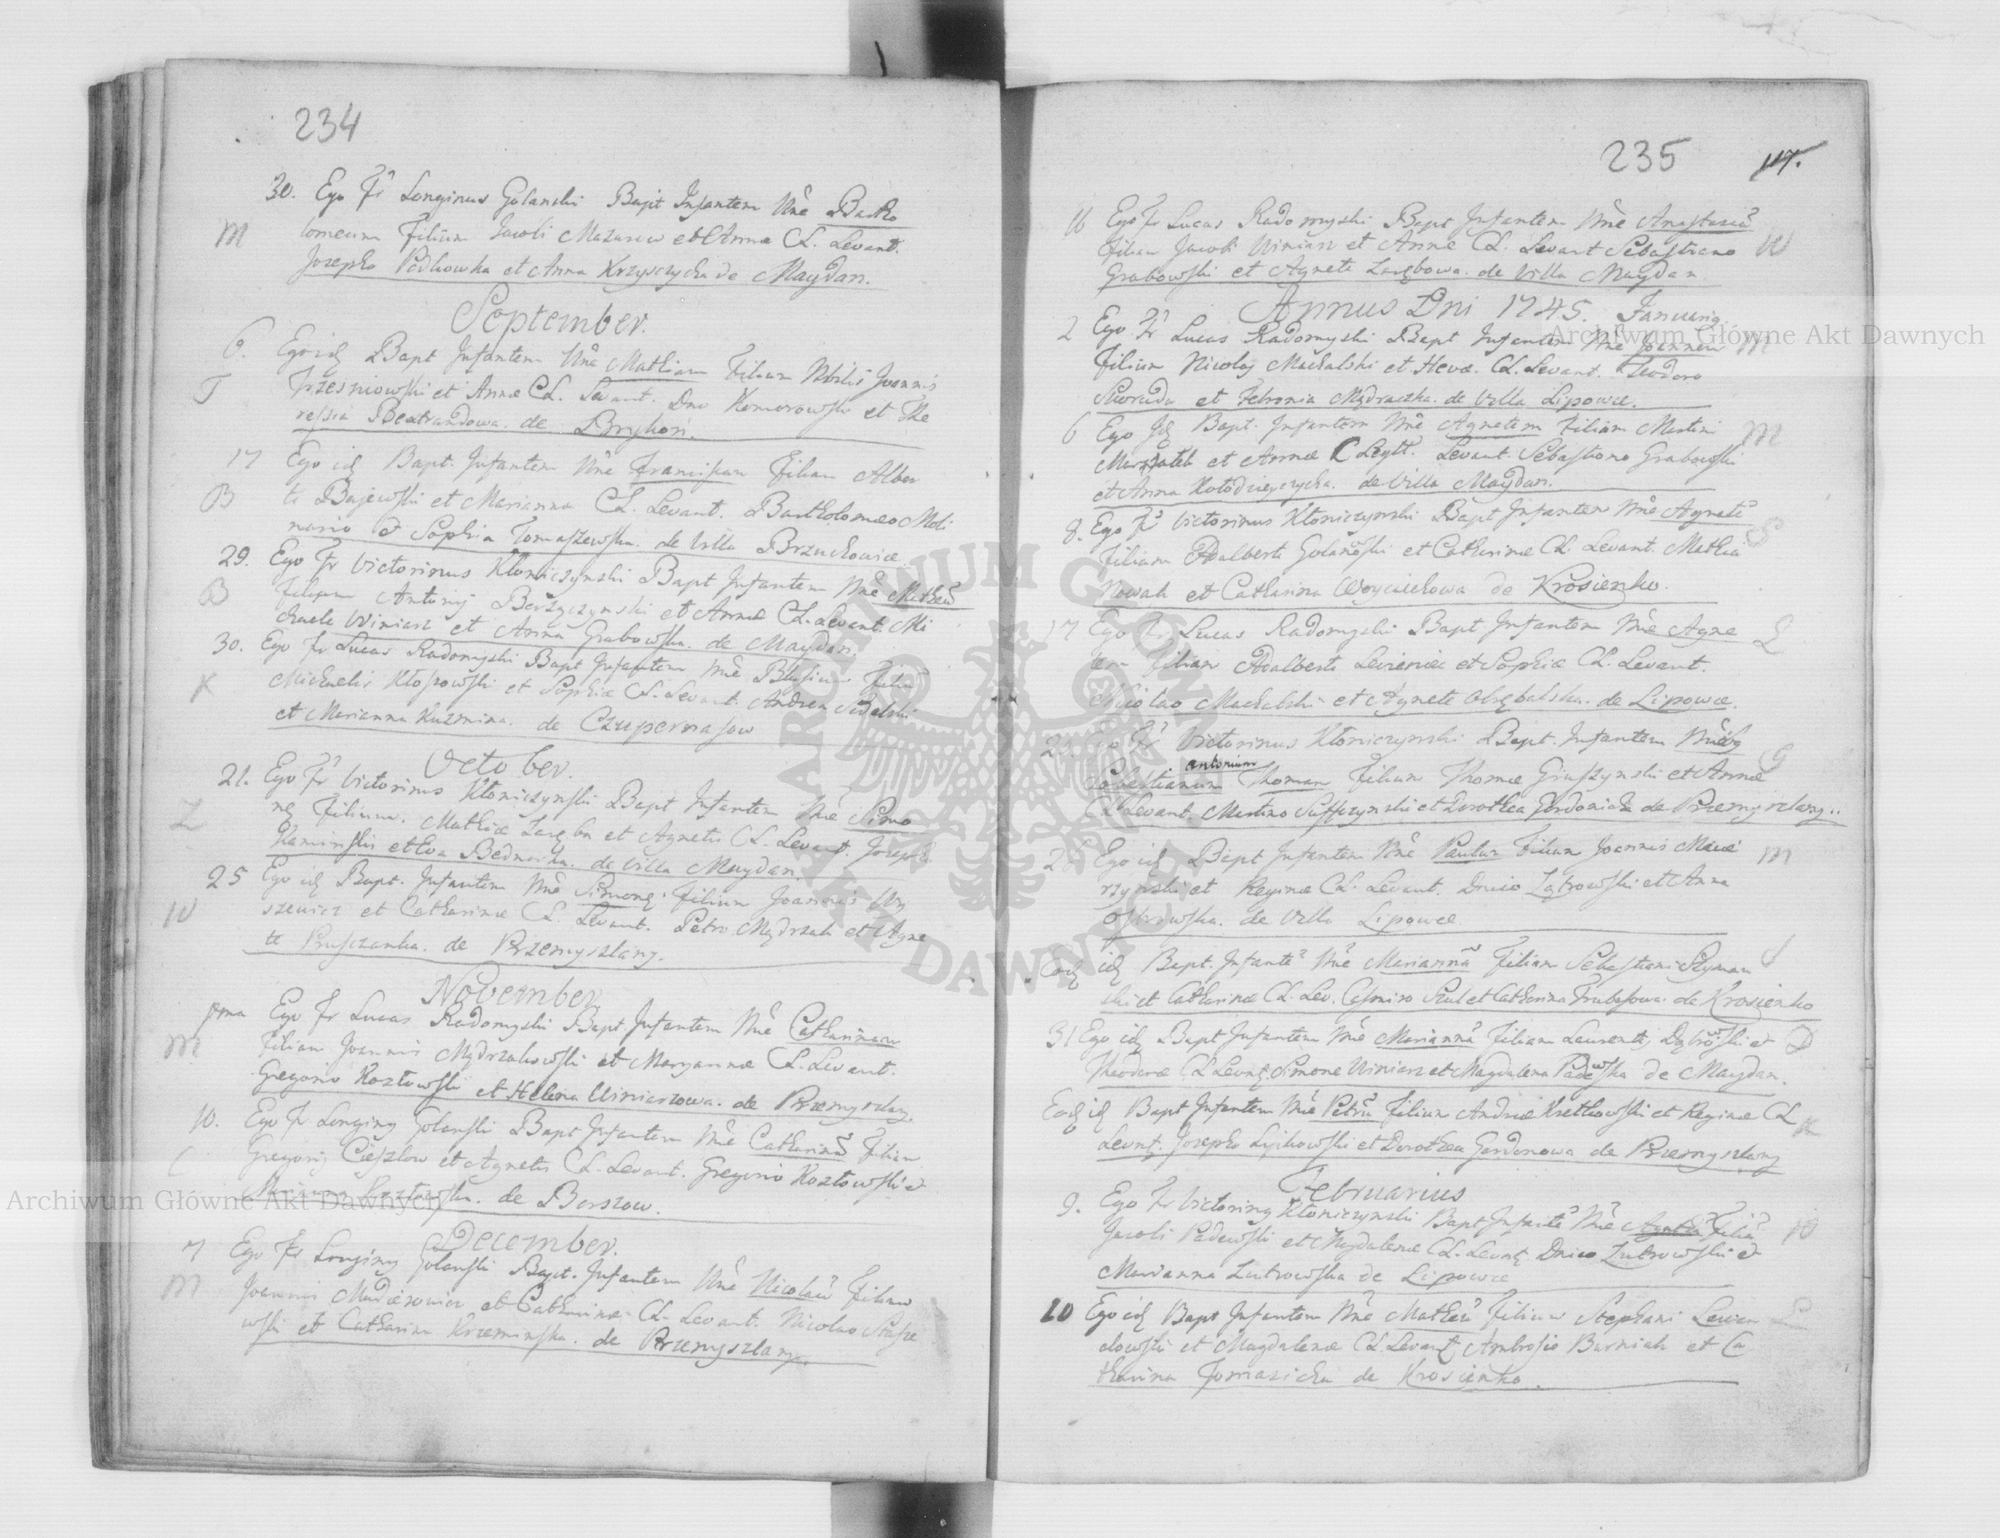 234
30. Ego Fr Longinus Golanski Bapt Infantem Nne Bartho
M lomeum Filium Jacobi Mazurow et Anna CL. Levant.
Josepho Padkowka et Anna Krzysczycha de Maydan.
September.
6. Ego id Bapt Infantem Nne Mathiam Filium Nobilis Joannis
T Trzesniowski et Annae CL. Levant. Dno Komorowski et The
ressia Beatrandowa. de Brykon.
17 Ego id Bapt. Infantem Nne Franciscum Filium Alber
B ti Bajewski et Marianna CL. Levant. Bartholomaeo Moli
nario et Sophia Tomaszewska. de Villa Brzuchowice.
29. Ego Fr Victorinus Kloniczynski Bapt Infantem Nne Matheu
B Filium Antonij Berzyczynski et Annae CL. Levant. Mi
chaele Winiarz et Anna Grabowska. de Maydan.
30. Ego Fr Lucas Radomyski Bapt Infantem Nne Blasium Filiu
K Michaelis Kłosowski et Sophiae CL. Levant. Andrea
et Marianna Kuzmina. de Czupernasow
October.
21. Ego Fr Victorinus Kloniczynski Bapt Infantem Nne Simo
Z nem Filium. Mathiae Zaręba et Agnetis CL. Levant. Josepho
Kaminski et Eva Bednarka. de Villa Maydan.
25 Ego id Bapt. Infantem Nne Simone Filium Joannis Wy
W szewicz et Catharinae CL. Levant. Petro Mędrzak et Agne
te Prusczanka. de Przemyszlany.
November
pma Ego Fr Lucas Radomyski Bapt Infantem Nne Catharinam
M Filiam Joannis Mędrzakowski et Maryannae CL. Levant.
Gregorio Kozłowski et Helena Winiarzowa. de Przemyszlany.
10. Ego Fr Longing Golanski Bapt Infantem Nne Catharina Filiam
C Gregorij Cieszlow et Agnetis CL. Levant. Gregorio Kozłowski et
Marianna Kozłowska. de Borszow.
December.
7 Ego Fr Longing Golanski Bapt. Infantem Nne Nicolau Filium
M Joannis et Catharinae CL. Levant. Nicolao Stasze
wski et Catharina Krzeminska. de Przemyszlany.
235 117.
16 Ego Fr Lucas Radomyski Bapt Infantem Nne Anastasia
Filiam Jacobi Winiarz et Annae CL. Levant Sebastiano W
Grabowski et Agnete Zarębowa. de Villa Maydan
Annus Dni 1745. Januarig.
2 Ego Fr Lucas Radomyski Bapt Infantem Nne Joannem M
Filium Nicolaj Machalski et Hevae. CL. Levant. Teodoro
Skoruda et Febronia Mędraczka. de Villa Lipowce.
6 Ego Id Bapt. Infantem Nne Agnetem Filiam Martini M
et Annae C Legtt. Levant. Sebastiano Grabowski
et Anna Kołodzieyczycha. de Villa Maydan.
8. Ego Fr Victorinus Kloniczynski Bapt Infantem Nne Agnete G
Filiam Adalberti Golanowski et Catharinae CL. Levant. Mathia
Nowak et Catharina Woyciechowa de Krosienko.
17 Ego Fr Lucas Radomyski Bapt Infantem Nne Agne L
tem Filiam Adalberti et Sophiae CL. Levant.
Nicolao Machalski et Agnete Obrębalska. de Lipowce.
Ego Fr Victorinus Kloniczynski Bapt. Infantem Nnibg G
antonium
Sebastianum Thomam Filium Thomae Giuszynski et Annae
CL Levant. Martino Suffczynski et Dorothea Gordonicha de Przemyszlany..
Ego id Bapt Infantem Nne Paulum Filium Joannis Macie M
rzynski et Reginae CL. Levant. Dnico Zatrowski et Anna
Ostrowska. de Villa Lipowce
Eod id Bapt. Infante Nne Marianna Filiam Sebastiani Szyman S
ski et Catharinae CL. Lev. Casmiro Szul et Catharina Trubasowa. de Krosienko
31 Ego id Bapt Infantem Nne Marianna Filiam Laurentij Dąbrowski et D
Theodorae CL Levnt. Simone Winiarz et Magdalena Padewska de Maydan.
Eod id Bapt Infantem Nne Petru Filium Andreae Krettkowski et Reginae CL K
Levnt. Josepho Lysikowski et Dorothea Gordonowa de Przemyszlany
Februarius
9. Ego Fr Victoring Kloniczynski Bapt Infante Nne Agatha Filia P
Jacobi Padewski et Magdalenae CL. Levnt. Dnico Zatrowski et
Marianna Zatrowska de Lipowce
10 Ego id Bapt Infantem Nne Matheu Filium Stephani Lewan L
dowski et Magdalenae CL. Levant Ambrosio Burniak et Ca
tharina Tomasicha de Krosienko.
Archiwum Główne Akt Dawnych
Archiwum Główne Akt Dawnych
ARCHIWUM GŁÓWNE AKT DAWNYCH